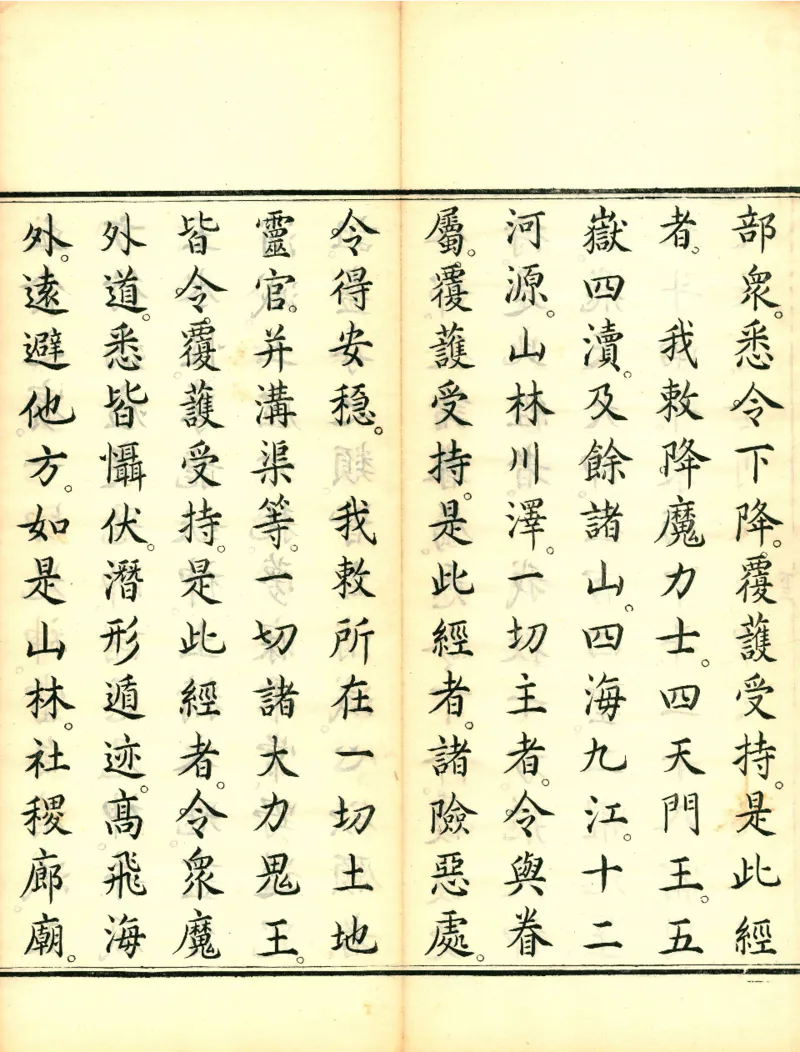 部衆。悉令下降。覆護受持。是此經
者。　我敕降魔力士。四天門王。五
嶽四瀆。及餘諸山。四海九江。十二
河源。山林川澤。一切主者。令與眷
屬。覆護受持。是此經者。諸險惡處。
令得安穩。　我敕所在一切土地
靈官。并溝渠等。一切諸大力鬼王。
皆令覆護受持。是此經者。令衆魔
外道。悉皆懾伏。潛形遁迹。高飛海
外。遠避他方。如是山林。社稷廊廟。